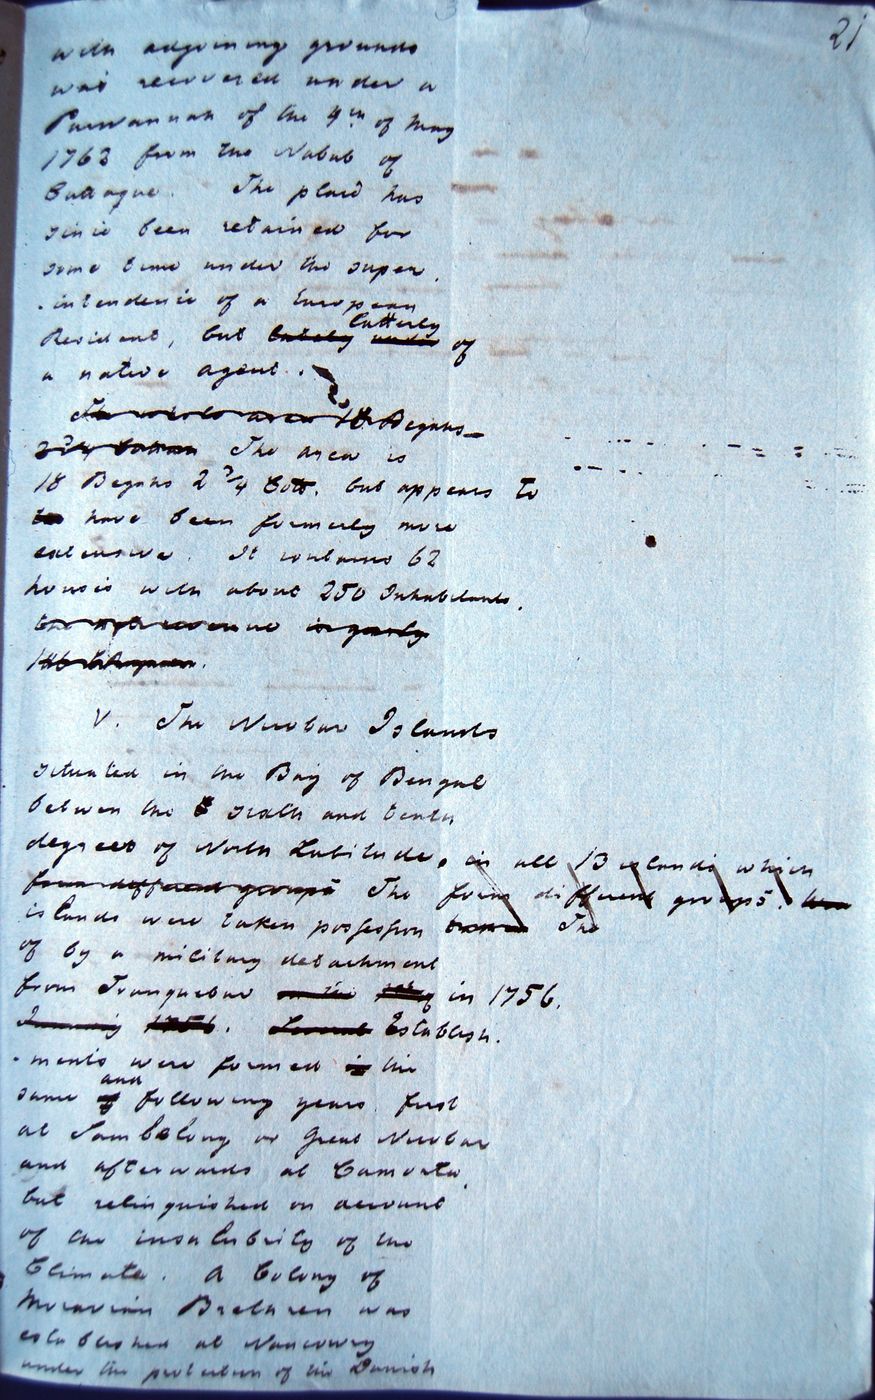 21
with adjoining grounds
was recovered under a
Purwannah of the 4th of May
1763 from the Nabab of
Cattaque. The place has
since been retained for
some time under the super.
.intendence of a European
Resident, but lately under latterly of
a native agent.
The whole area is 18 Begahs
2 3/4 The area is
18 Begahs 2 3/4 Cott. but appears to
have been formerly more
extensive. It contains 62
houses with about 250 Inhabitants.
the nett revenue is yearly
V. The Nicobar Islands
situated in the Bay of Bengal
between the sixth and tenth
degrees of North Latitude, in all 13 islands which
form different groups The form different groups.
islands were taken possession The
of by a military detachment
from Tranquebar in the in 1756.
January 1756. Several Establish.
.ments were formed in the
same and following years first
at Sambelong or Great Nicobar
and afterwards at Camorta,
but relinquished on account
of the insalubrity of the
Climate. A Colony of
Moravian Brethren was
established at Nancowry
under the protection of the Danish